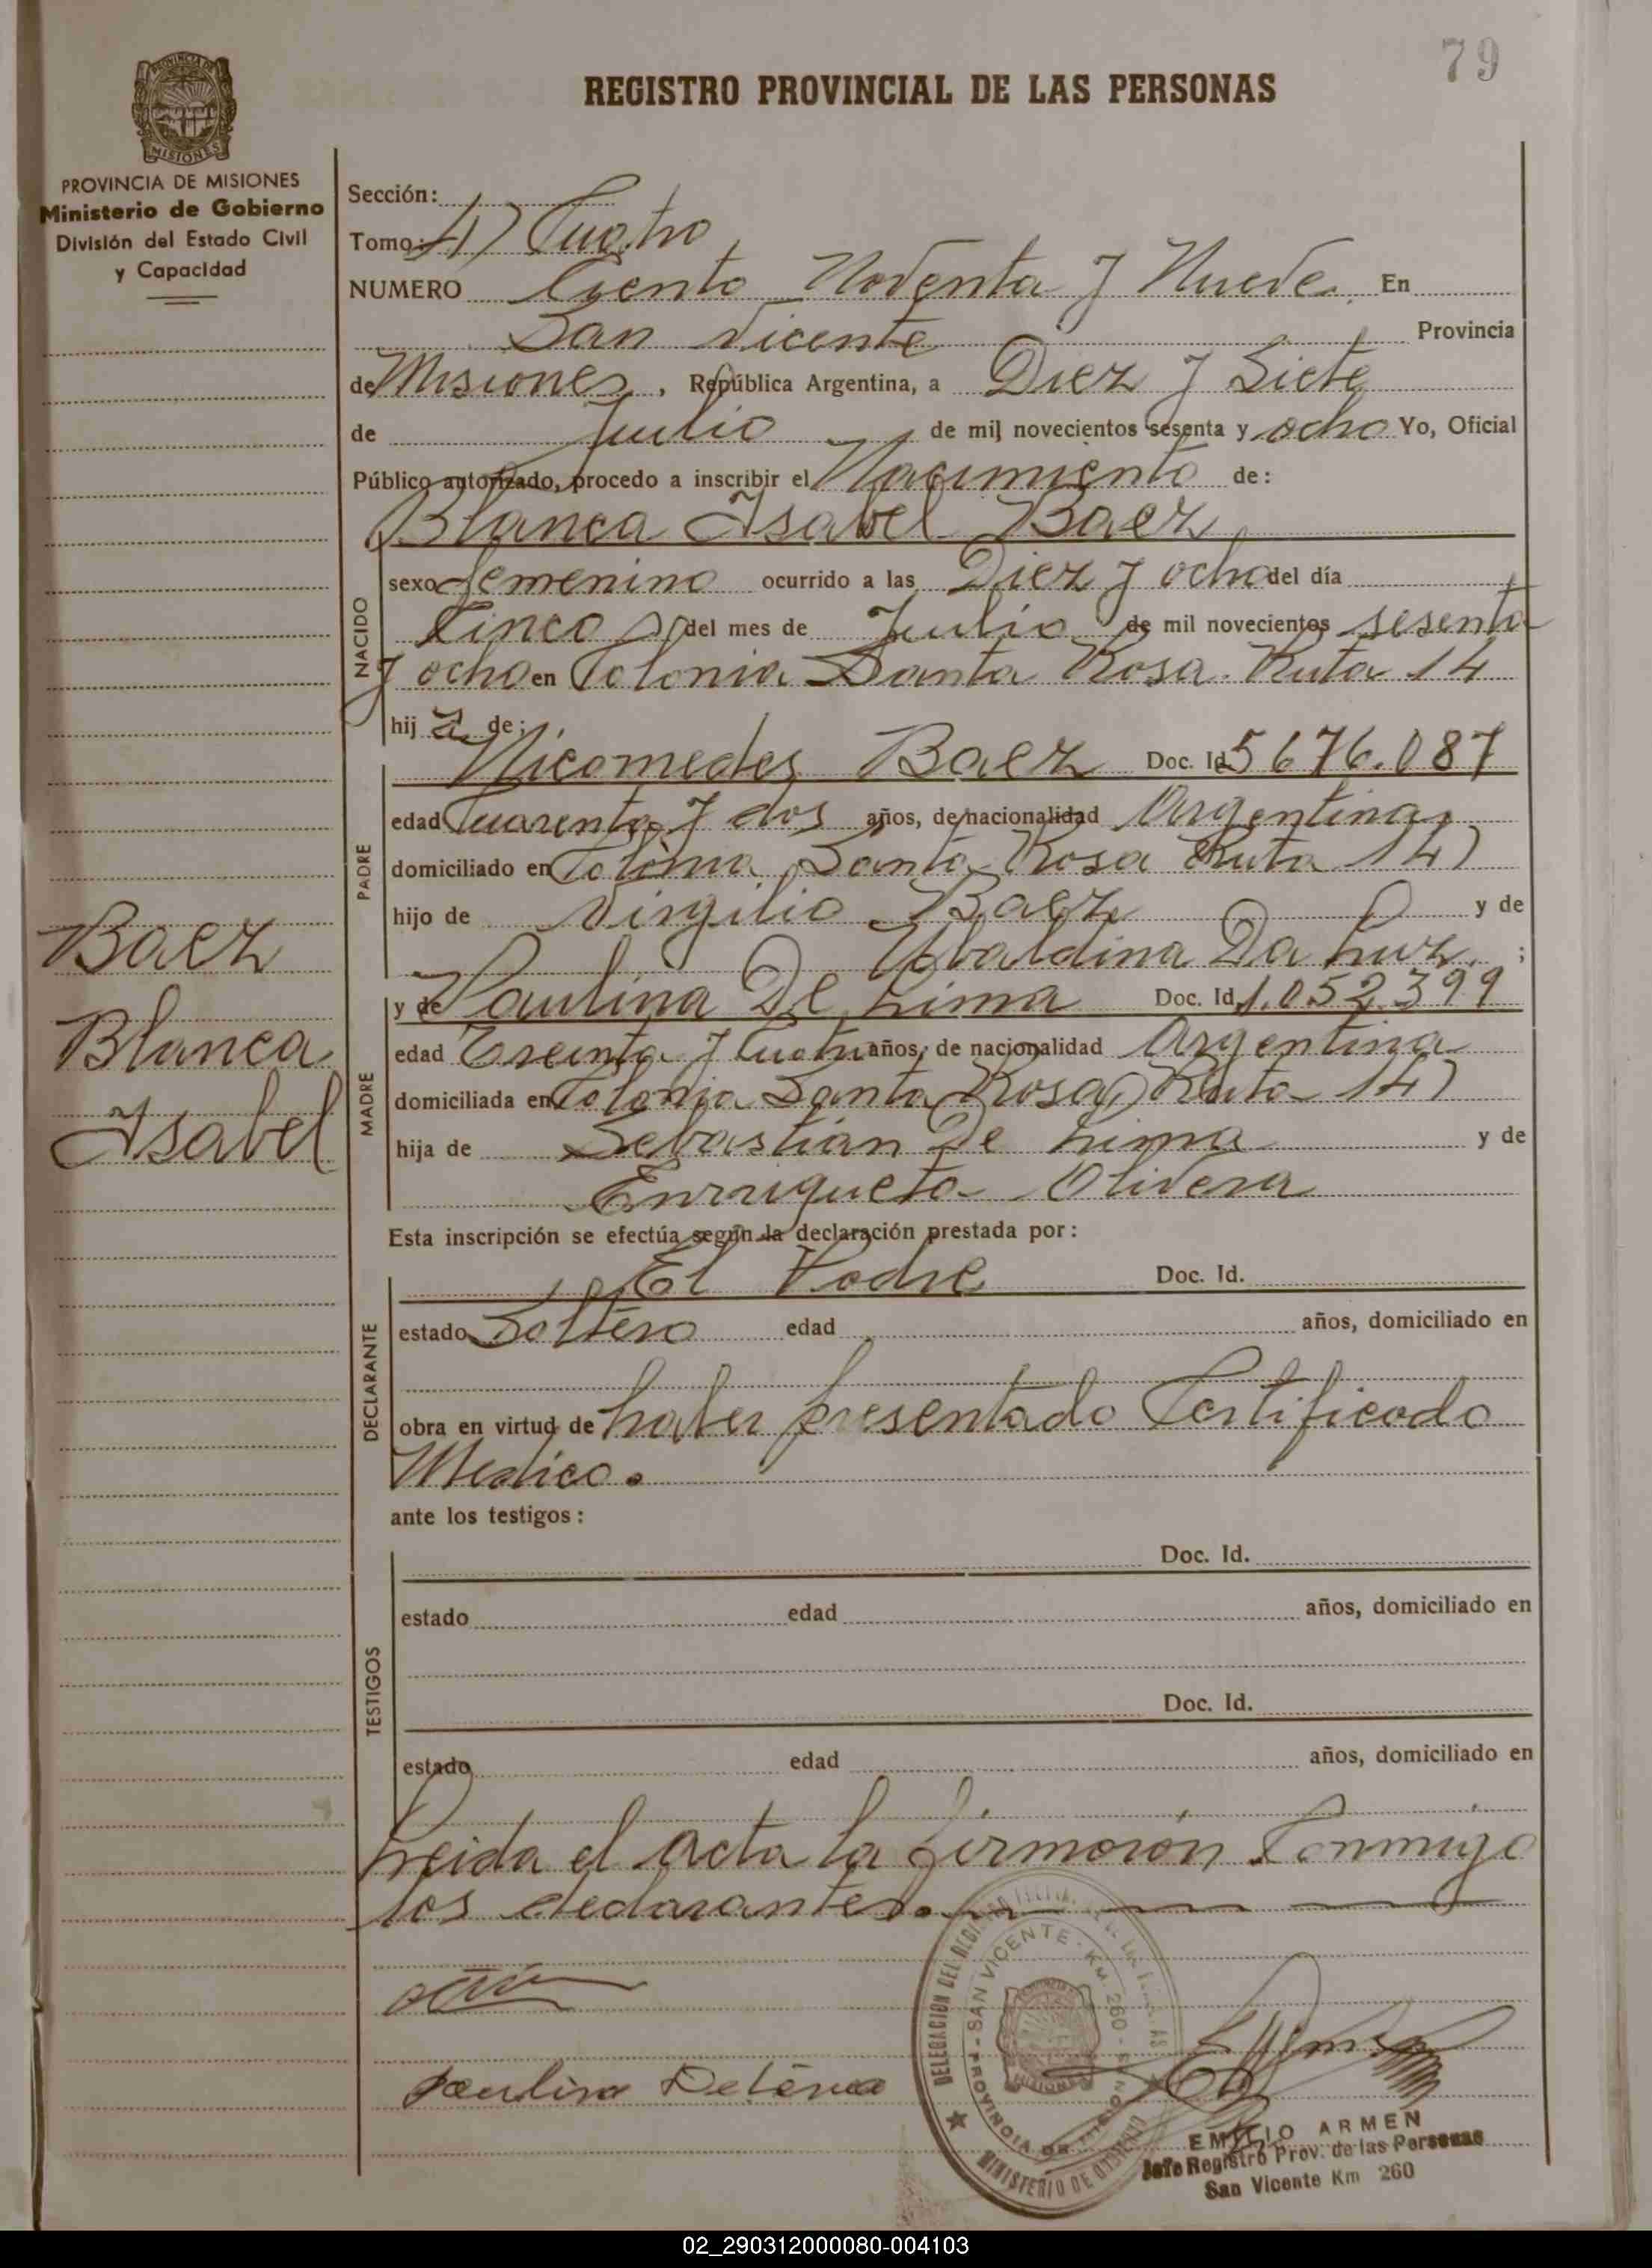 79
REGISTRO PROVINCIAL DE LAS PERSONAS
PROVINCIA DE MISIONES
Ministerio de Gobierno
División del Estado Civil
y Capacidad
Baez
Blanca
Isabel
Sección:
Tomo: 4) Cuatro
NUMERO Ciento Noventa y Nueve. En
San Vicente Provincia
de Misiones, República Argentina, a Diez y Siete
de Julio de mil novecientos sesenta y ocho Yo, Oficial
Público autorizado, procedo a inscribir el Nacimiento de:
Blanca Isabel Baez
NACIDO
sexo femenino ocurrido a las Diez y ocho del día
Cinco del mes de Julio de mil novecientos sesenta
y ocho en Colonia Santa Rosa. Ruta 14
hij a de:
PADRE
Nicomedes Baez Doc. Id 5676.087
edad Cuarenta y dos años, de nacionalidad Argentina
domiciliado en Colonia Santa Rosa Ruta 14)
hijo de Virgilio Baez y de
Ubaldina Da Luz. ;
MADRE
y de Paulina De Lima Doc. Id. 1.052.399
edad Treinta y Cuatro años, de nacionalidad Argentina
domiciliada en Colonia Santa Rosa Ruta 14)
hija de Sebastián De Lima y de
Enrriqueta Olivera
Esta inscripción se efectúa según la declaración prestada por:
DECLARANTE
El Padre Doc. Id.
estado Soltero edad años, domiciliado en
obra en virtud de haber presentado Certificado
Medico.
ante los testigos:
TESTIGOS
Doc. Id.
estado edad años, domiciliado en
Doc. Id.
estado edad años, domiciliado en
Leida el acta la firmarón Conmigo
los declarantes.
DELEGACION DEL
SAN VICENTE - KM 260
PROVINCIA DE MISIONES
MINISTERIO DE GOBIERNO
MISIONES
EMILIO ARMEN
Jefe Registro Prov. de las Personas
San Vicente Km 260
02_290312000080-004103